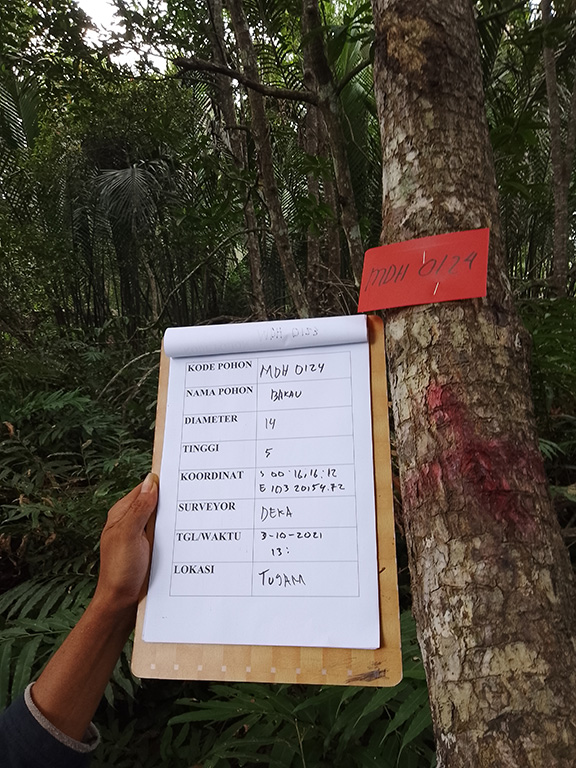 MDH 0124
KODE POHON MDH 0124
NAMA POHON BAKAU
DIAMETER 14
TINGGI 5
KOORDINAT S 00:16,16:12
E 103 20154.72
SURVEYOR DEKA
TGL/WAKTU 3-10-2021
13:
LOKASI TUGAM